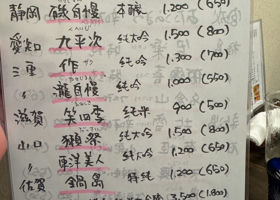 静岡 磯自慢 本醸 1.200 (650)
愛知 九平次 純大吟 1.500 (800)
三重 作 純吟 1.300 (700)
〃 瀧自慢 純吟 1.000 (550)
滋賀 笑四季 純米 900 (500)
山口 獺祭 純大吟 1.500 (800)
〃 東洋美人 純大吟 1.200 (650)
佐賀 鍋島 特純 1.200 (650)
3.500 (1.800)